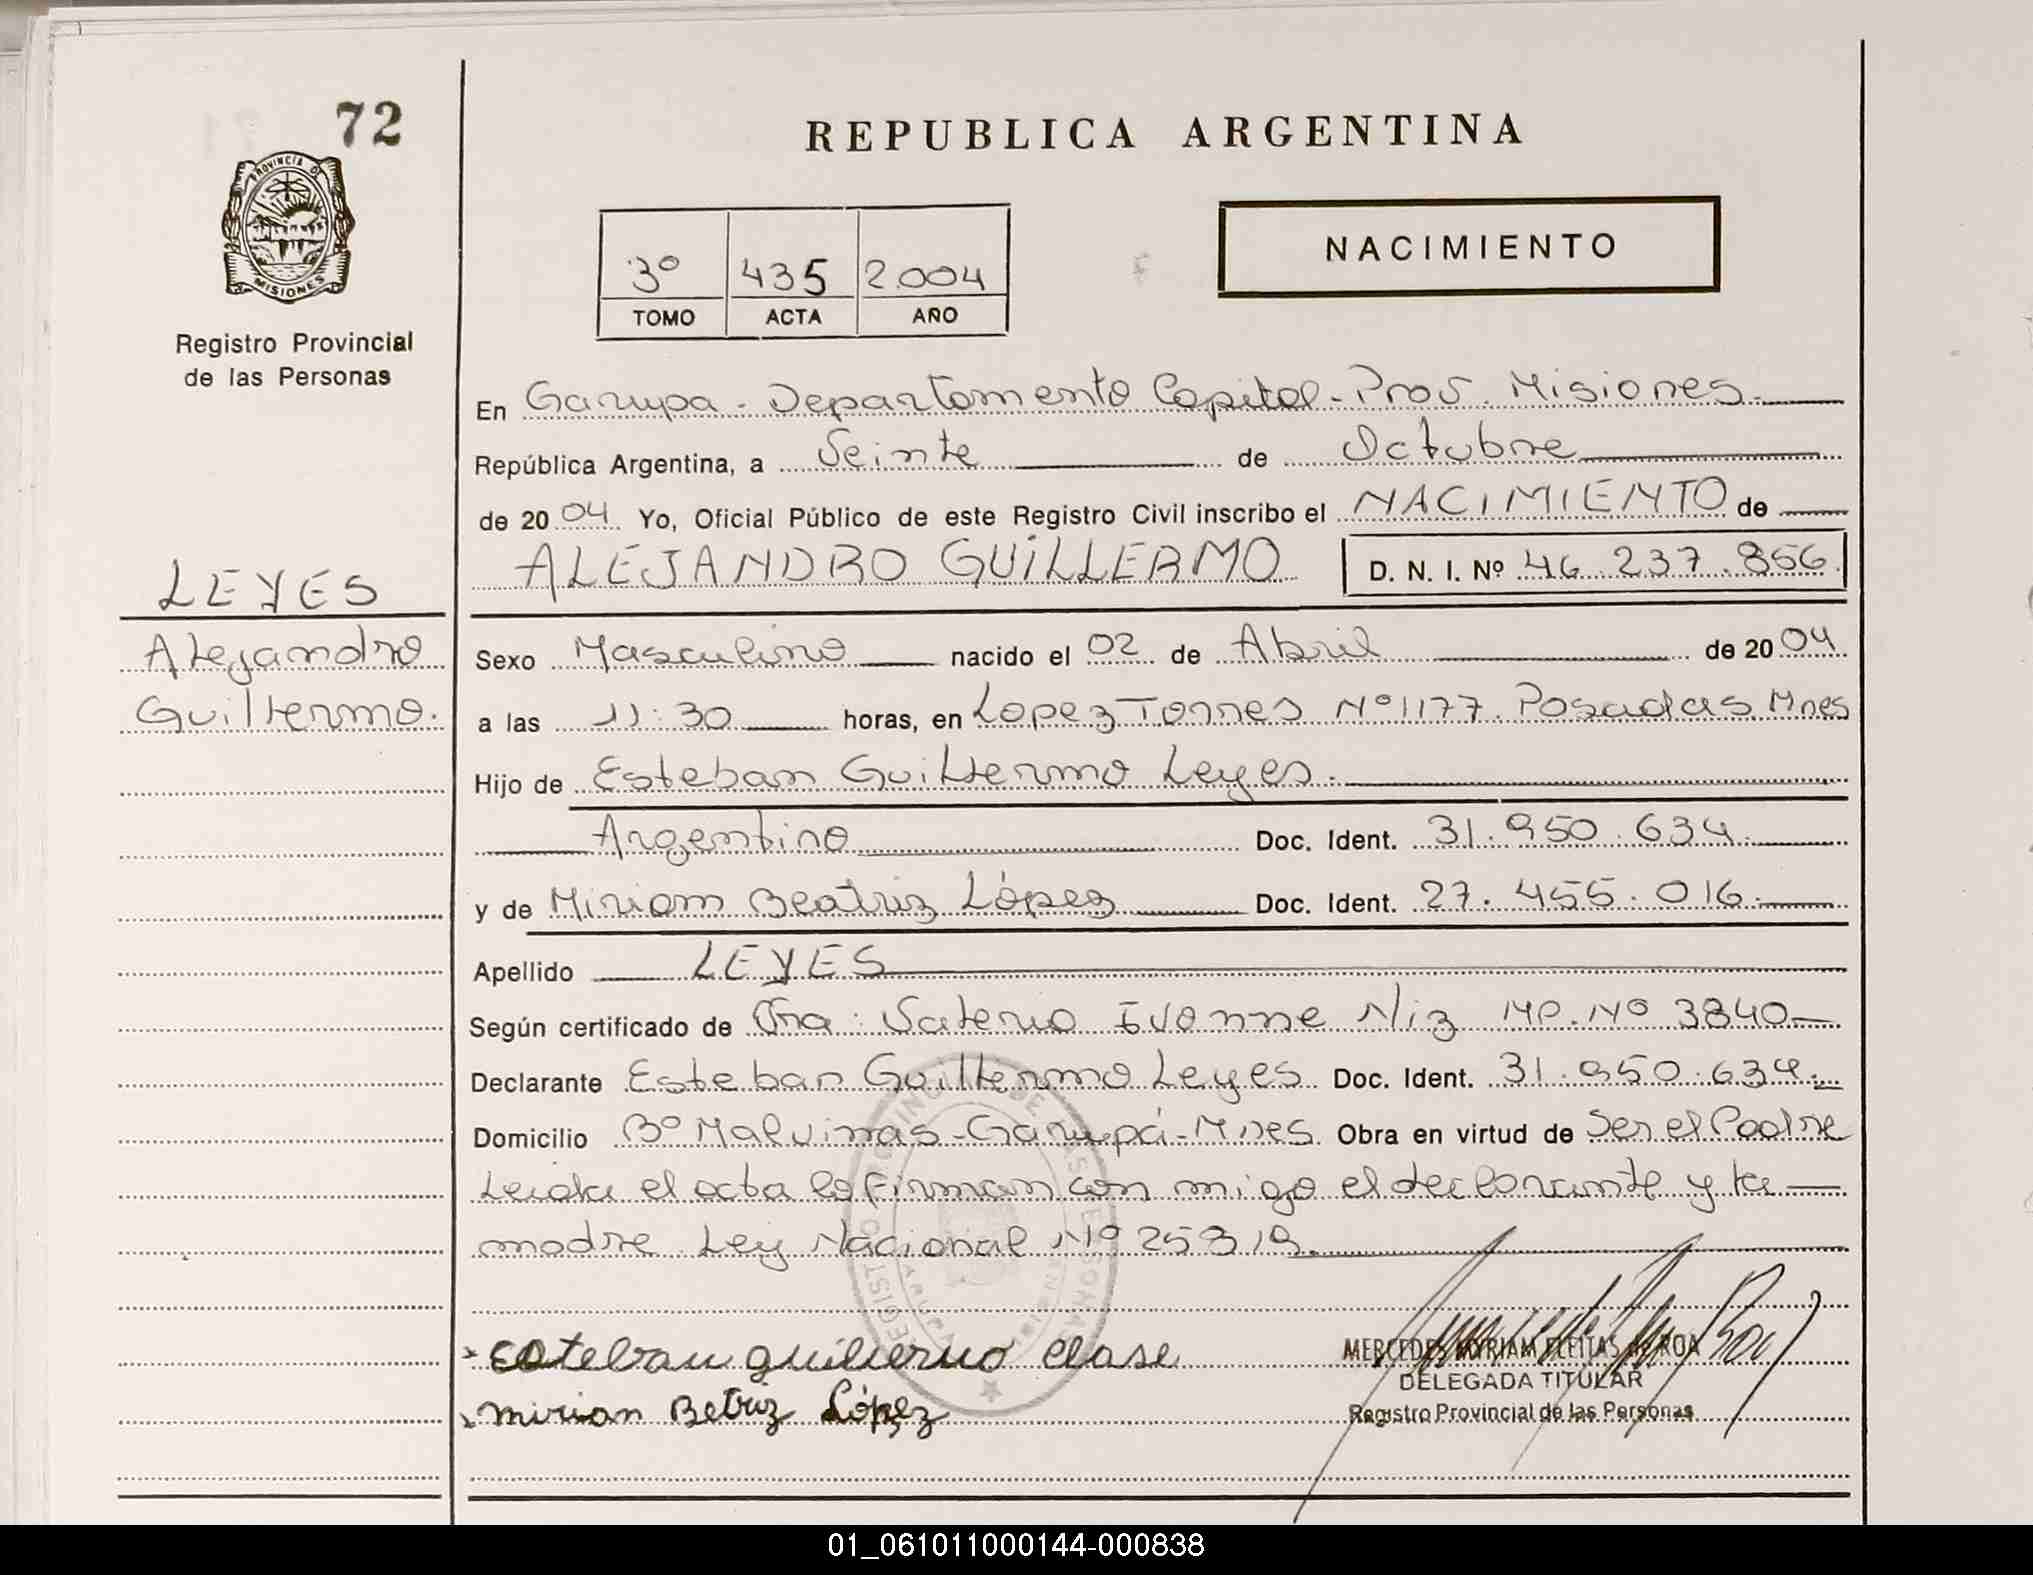 72
REPUBLICA ARGENTINA
PROVINCIA DE
MISIONES
Registro Provincial
de las Personas
3º 435 2004
TOMO ACTA AÑO
NACIMIENTO
En Garupa - Departamento Capital - Prov. Misiones.
República Argentina, a Veinte de Octubre
de 2004 Yo, Oficial Público de este Registro Civil inscribo el NACIMIENTO de
ALEJANDRO GUILLERMO D. N. I. Nº 46.237.856
LEYES
Alejandro
Guillermo.
Sexo Masculino nacido el 02 de Abril de 2004
a las 11:30 horas, en Lopez Torres Nº 1177. Posadas Mnes
Hijo de Esteban Guillermo Leyes.
Argentino Doc. Ident. 31.950.634.
y de Miriam Beatriz López Doc. Ident. 27.455.016.
Apellido LEYES
Según certificado de Dra: Ivonne Niz MP. Nº 3840
Declarante Esteban Guillermo Leyes Doc. Ident. 31.950.634.
Domicilio Bº Malvinas - Garupá - Mnes. Obra en virtud de Ser el Padre
Leida el acta la firman con migo el declarante y la
madre Ley Nacional Nº
esteban guillermo
mirian Betriz López
MERCEDES MYRIAM FLEITAS de ROA
DELEGADA TITULAR
Registro Provincial de las Personas
01_061011000144-000838